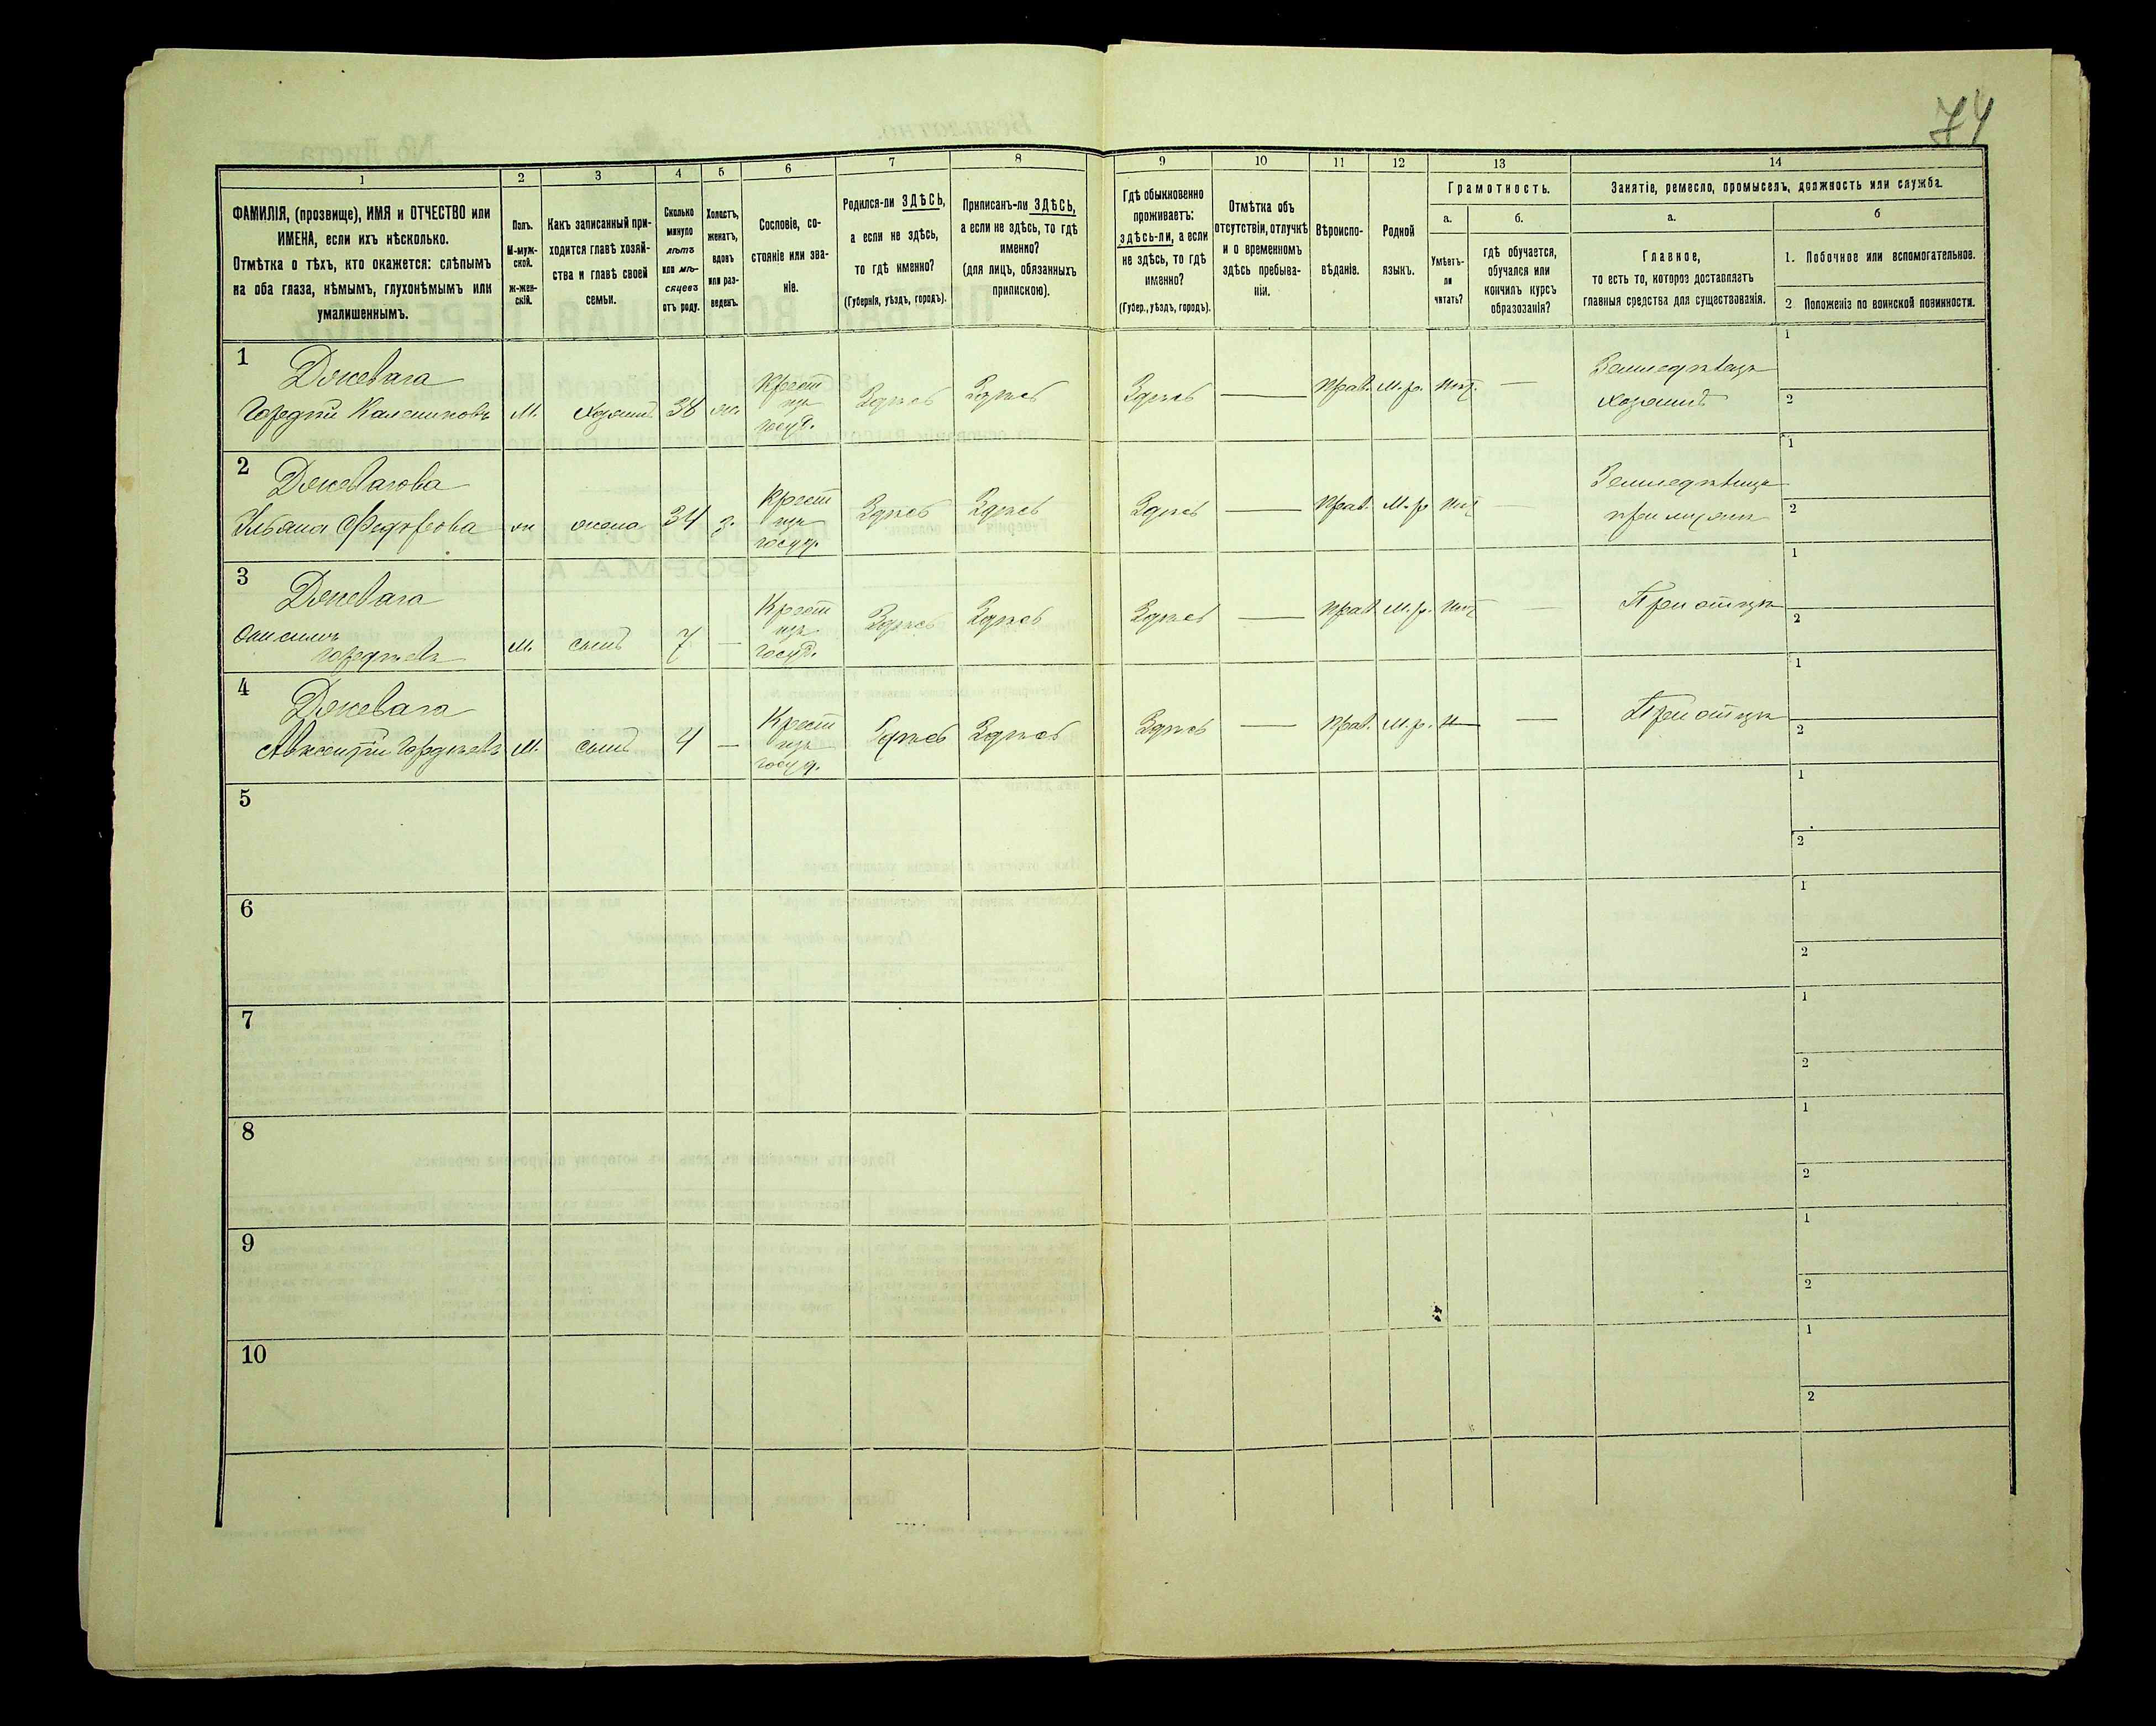 74
1
2
3
4
5
6
7
8
9
10
11
12
13
14
ФАМИЛІЯ, (прозвище), ИМЯ и ОТЧЕСТВО или
ИМЕНА, если ихъ нѣсколько.
Отмѣтка о тѣхъ, кто окажется: слѣпымъ
на оба глаза, нѣмымъ, глухонѣмымъ или
умалишеннымъ.
Полъ.
М-муж-
ской.
ж-жен-
скій.
Какъ записанный при-
ходится главѣ хозяй-
ства и главѣ своей
семьи.
Сколько
минуло
лѣтъ
или мѣ-
сяцевъ
отъ роду.
Холостъ,
женатъ,
вдовъ
или раз-
веденъ.
Сословіе, со-
стояніе или зва-
ніе.
Родился-ли ЗДѢСЬ,
а если не здѣсь,
то гдѣ именно?
(Губернія, уѣздъ, городъ).
Приписанъ-ли ЗДѢСЬ,
а если не здѣсь, то гдѣ
именно?
(для лицъ, обязанныхъ
припискою).
Гдѣ обыкновенно
проживаетъ:
здѣсь-ли, а если
не здѣсь, то гдѣ
именно?
(Губер., уѣздъ, городъ).
Отмѣтка объ
отсутствіи, отлучкѣ
и о временномъ
здѣсь пребыва-
ніи.
Вѣроиспо-
вѣданіе.
Родной
языкъ.
Грамотность.
а.
Умѣетъ-
ли
читать?
б.
гдѣ обучается,
обучался или
кончилъ курсъ
образованія?
Занятіе, ремесло, промыселъ, должность или служба.
а.
Главное,
то есть то, которое доставляетъ
главныя средства для существованія.
б
1. Побочное или вспомогательное.
2 Положеніе по воинской повинности.
1
Джевага
Гордѣй М. Хозяинъ 38 ж. Крест изъ госуд. Здѣсь Здѣсь Здѣсь — Прав. М.р. нѣт. — Земледѣлецъ хозяинъ
1
2
2
Джевагова
Ульяна Федорова ж жена 34 з. Крест изъ госуд. Здѣсь Здѣсь Здѣсь — Прав. М.р. нѣт — Земледѣлецъ при мужѣ
1
2
3
Джевага
Онисимъ
Гордѣевъ М. сынъ 7 — Крест изъ госуд. Здѣсь Здѣсь Здѣсь — Прав. М.р. нѣт — При отцѣ
1
2
4
Джевага
Авксентій Гордѣевъ М. сынъ 4 — Крест изъ госуд. Здѣсь Здѣсь Здѣсь — Прав. М.р. н — При отцѣ
1
2
5
1
2
6
1
2
7
1
2
8
1
2
9
1
2
10
1
2